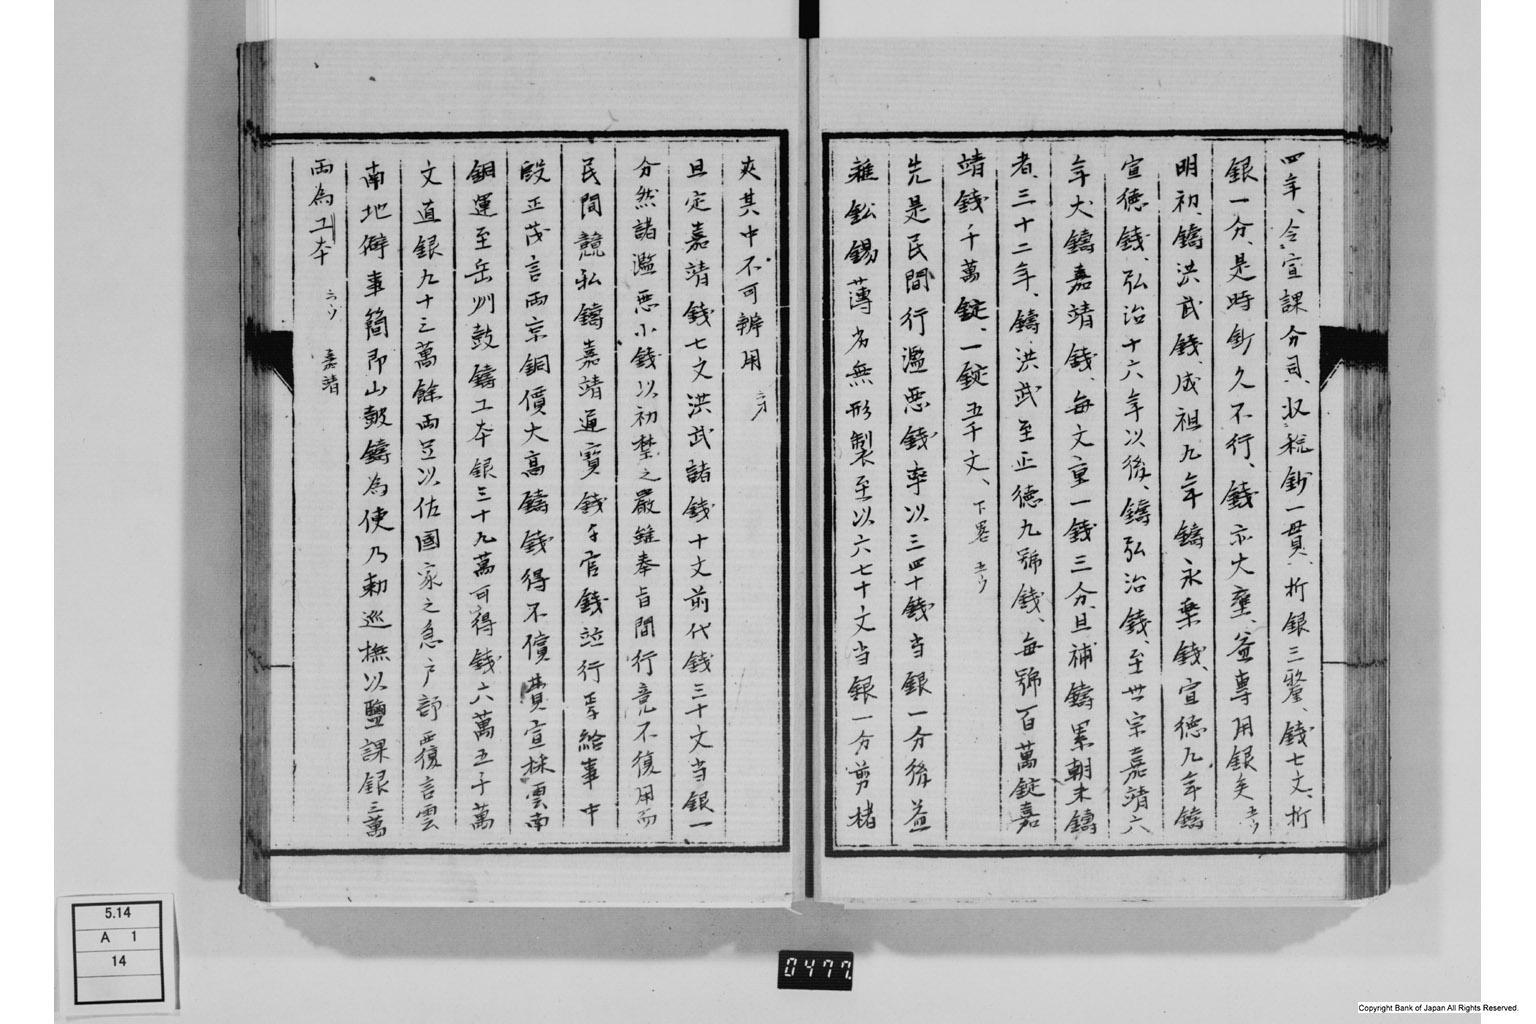 四年、令宣課分司、収税鈔一貫、折銀三釐、錢七文、折
銀一分、是時鈔久不行、錢亦大壅、益専用銀矣
明初、鑄洪武錢成祖九年鑄永楽錢、宣徳九年鑄
宣徳錢、弘治十六年以後、鑄弘治錢、至世宗嘉靖六
年大鑄嘉靖錢、毎文重一錢三分、且補鑄累朝未鑄
者、三十二年、鑄洪武至正徳九號錢、毎號百萬錠嘉
靖錢千萬錠、一錠五千文、下畧
先是民間行濫悪錢率以三四十錢当銀一分後益
雑鈆錫薄劣無形製至以六七十文当銀一分剪楮
夾其中不可辨用
且定嘉靖錢七文洪武諸錢十文前代錢三十文当銀一
分然諸濫悪小錢以初禁之嚴雖奉旨間行竟不復用而
民間競私鑄嘉靖通寳錢与官錢並行焉給事中
殷正茂言両京銅價大高鑄錢得不償費宣採雲南
銅運至岳州鼓鑄工本銀三十九萬可得錢六萬五千萬
文直銀九十三萬餘両足以佐國家之急戸部覆言雲
南地僻事簡即山鼓鑄為使乃勅巡撫以鹽課銀二萬
両為工本 嘉靖
5.14
A 1
14
0477
Copyright Bank of Japan All Rights Reserved.